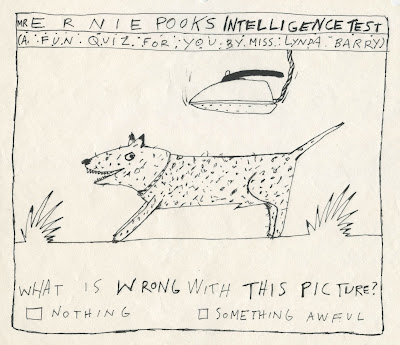 MR E R N I E POOK'S INTELLIGENCE TEST
(A FUN QUIZ FOR YOU BY MISS LYNDA BARRY)
WHAT IS WRONG WITH THIS PICTURE?
NOTHING SOMETHING AWFUL